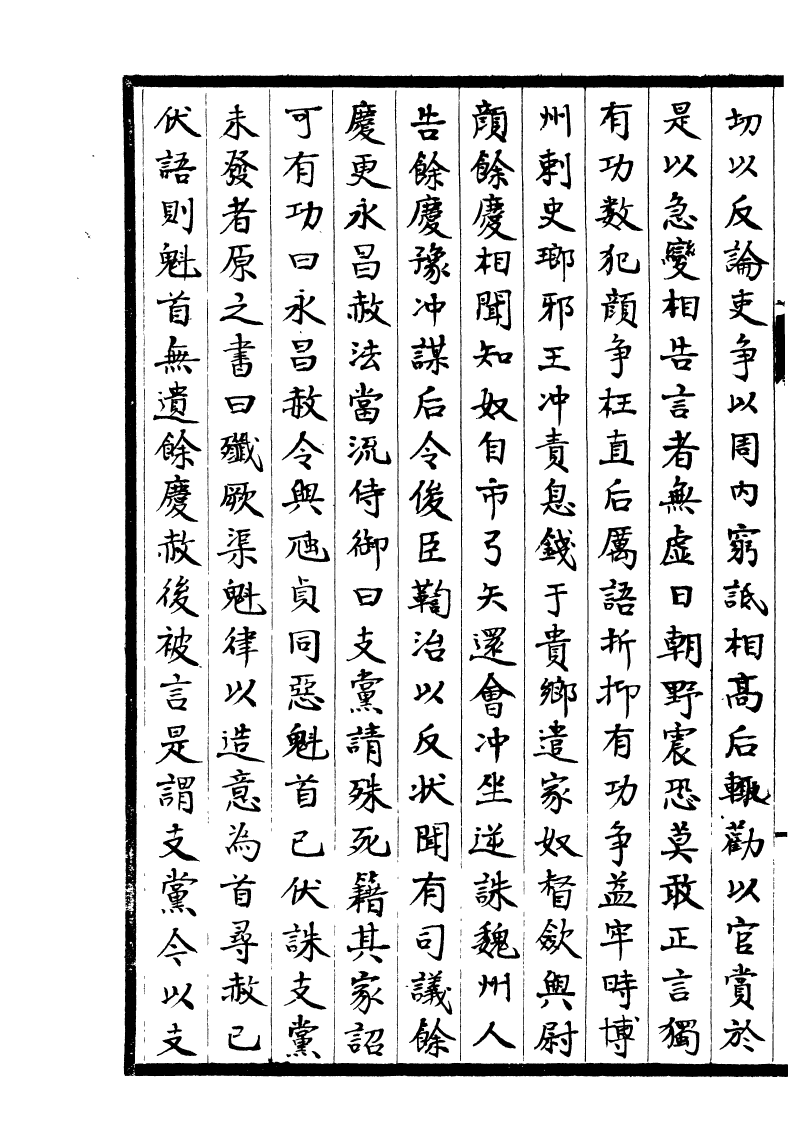 切以反論吏争以周内窮詆相髙后輙勸以官賞於
是以急變相告言者無虚日朝野震恐莫敢正言獨
有功数犯顔争枉直后厲語折抑有功争益牢時博
州刺史瑯邪王冲責息錢于貴鄉遣家奴督斂與尉
顔餘慶相聞知奴自市弓矢還會冲坐逆誅魏州人
告餘慶豫冲謀后令俊臣鞫治以反状聞有司議餘
慶更永昌赦法當流侍御曰支黨請殊死籍其家詔
可有功曰永昌赦令與虺貞同惡魁首已伏誅支黨
未發者原之書曰殲厥渠魁律以造意為首尋赦已
伏語則魁首無遺餘慶赦後被言是謂支黨今以支